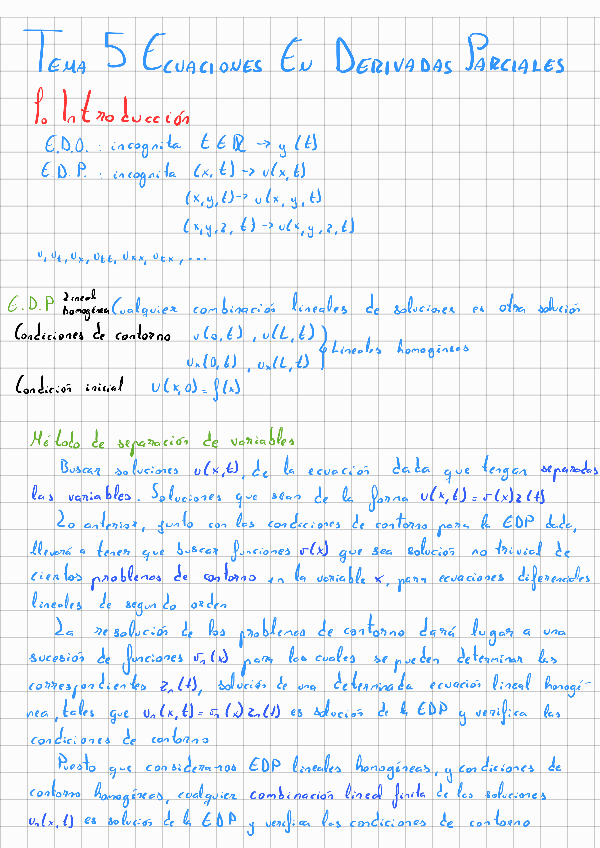 TEMA 5 ECUACIONES EN DERIVADAS PARCIALES
1. Introducción
E.D.O. : incognita t ∈ ℝ → y(t)
E.D.P. : incognita (x,t) → u(x,t)
(x,y,t) → u(x,y,t)
(x,y,z,t) → u(x,y,z,t)
u, ut, ux, utt, uxx, utx, ...
E.D.P Lineal homogénea Cualquier combinación lineales de soluciones es otra solución
Condiciones de contorno u(0,t), u(L,t)
ux(0,t), ux(L,t) } Lineales homogéneas
Condición inicial u(x,0) = f(x)
Método de separación de variables
Buscar soluciones u(x,t), de la ecuación dada que tengan separadas
las variables. Soluciones que sean de la forma u(x,t) = v(x)z(t)
Lo anterior, junto con las condiciones de contorno para la EDP dada,
llevará a tener que buscar funciones v(x) que sea solución no trivial de
ciertos problemas de contorno en la variable x, para ecuaciones diferenciales
lineales de segundo orden
La resolución de los problemas de contorno dará lugar a una
sucesión de funciones vn(x) para las cuales se pueden determinar las
correspondientes zn(t), solución de una determinada ecuación lineal homogé-
nea, tales que un(x,t) = vn(x)zn(t) es solución de la EDP y verifica las
condiciones de contorno
Puesto que consideramos EDP lineales homogéneas, y condiciones de
contorno homogéneas, cualquier combinación lineal finita de las soluciones
un(x,t) es solución de la EDP y verifica las condiciones de contorno